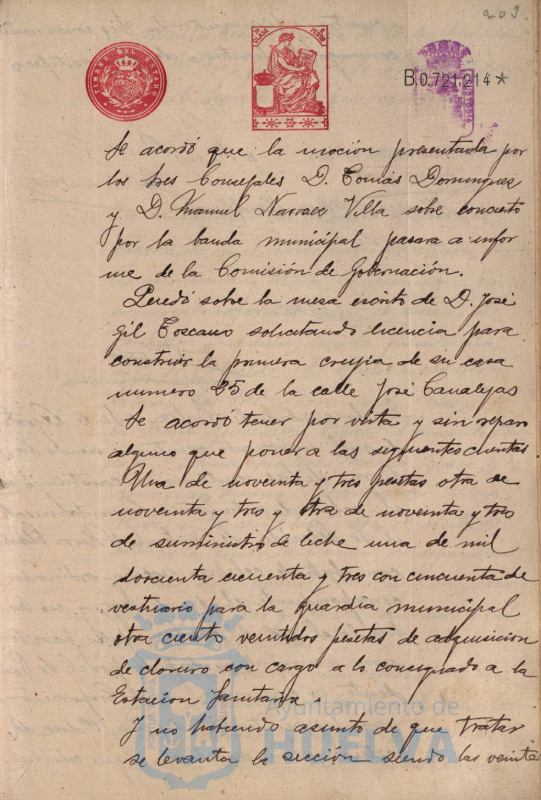 203
TIMBRE DEL ESTADO
B0,721,214*
Se acordó que la moción presentada por
los tres Consejales D. Tomás Dominguez
y D. Manuel Narvaez Villa sobre concierto
por la banda municipal pasara a infor
me de la Comisión de Gobernación.
Quedó sobre la mesa escrito de D. José
Gil Toscano solicitando licencia para
construir la primera crujia de su casa
numero 25 de la calle José Canalejas
Se acordó tener por vista y sin reparo
alguno que poner a las siguientes cuentas
Una de noventa y tres pesetas otra de
noventa y tres y otra de noventa y tres
de suministro de leche una de mil
doscienta cicuenta y tres con cincuenta de
vestuario para la guardia municipal
otra ciento veintidos pesetas de adquisicion
de cloruro con cargo a lo consignado a la
Estacion Sanitaria.
Y no habiendo asunto de que tratar
se levanta la sección siendo las veinte
Ayuntamiento de
HUELVA